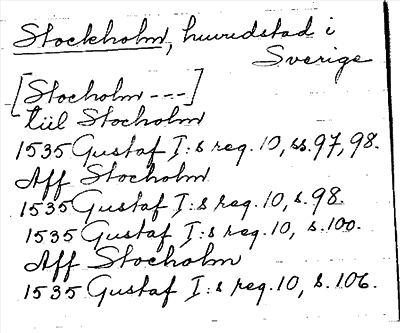 Stockholm, huvudstad i
Sverige
[Stocholm ---]
tiil Stocholm
1535 Gustaf I:s reg. 10, ss. 97, 98.
Aff Stocholm
1535 Gustaf I:s reg. 10, s. 98.
1535 Gustaf I:s reg. 10, s. 100.
Aff Stocholm
1535 Gustaf I:s reg. 10, s. 106.